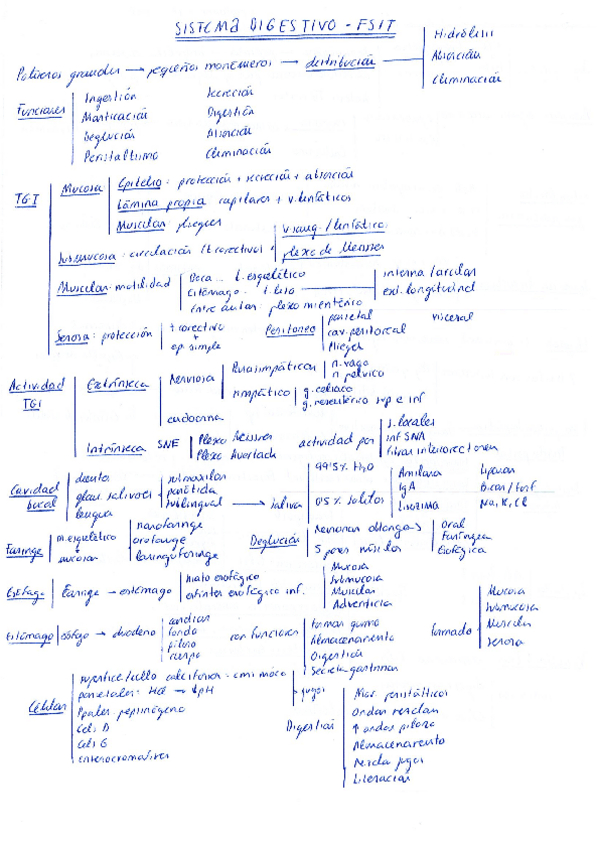 SISTEMA DIGESTIVO - FSIT
Hidrólisis
Absorción
Eliminación
Polímeros grandes → pequeños monómeros → distribución
Funciones
Ingestión Secreción
Masticación Digestión
Deglución Absorción
Peristaltismo Eliminación
TGI
Mucosa
Epitelio: protección + secreción + absorción
Lámina propia capilares + v. linfáticos
Muscular: pliegues
Submucosa: circulación (t. conectivo)
v. sang. / linfáticos
plexo de Meissner
Muscular: motilidad
Boca t. esquelético
Estómago t. liso
interna/circular
ext. longitudinal
Entre ambas: plexo mientérico
Serosa: protección
t. conectivo
+
ep. simple
Peritoneo
parietal visceral
cav. peritoneal
Pliegues
Actividad TGI
Extrínseca
Nerviosa
Parasimpático
n. vago
n. pélvico
simpático
g. celiaco
g. mesentérico sup e inf
endocrina
Intrínseca SNE
Plexo Meissner
Plexo Auerbach
actividad por
s. locales
inf SNA
fibras interconectoras
Cavidad bucal
dientes
gland. salivares
lengua
submaxilar
parótida
sublingual
→ saliva
99'5% H2O
0'5% solutos
Amilasa Lipasa
IgA Bicar/fosf
Lisozima Na, K, Cl
Faringe
m. esquelético
+
mucosa
nasofaringe
orofaringe
laringofaringe
Deglución
5 pares
Oral
Faríngea
Esofágica
Esófago
Faringe → estómago
hiato esofágico
esfínter esofágico inf.
Mucosa
Submucosa
Muscular
Adventicia
Estómago
esófago → duodeno
cardias
fondo
píloro
cuerpo
con funciones
formar quimo
Almacenamiento
Digestión
Secreta gastrina
formado
Mucosa
Submucosa
Muscular
Serosa
Células
superficie/cuello caliciformes
parietales: HCl → ↓pH
Ppales: pepsinógeno
Cels D
Cels G
enterocromafines
jugos
Digestión
Mov. peristálticos
Ondas mezclan
↑ ondas píloro
Almacenamiento
Mezcla jugos
Liberación